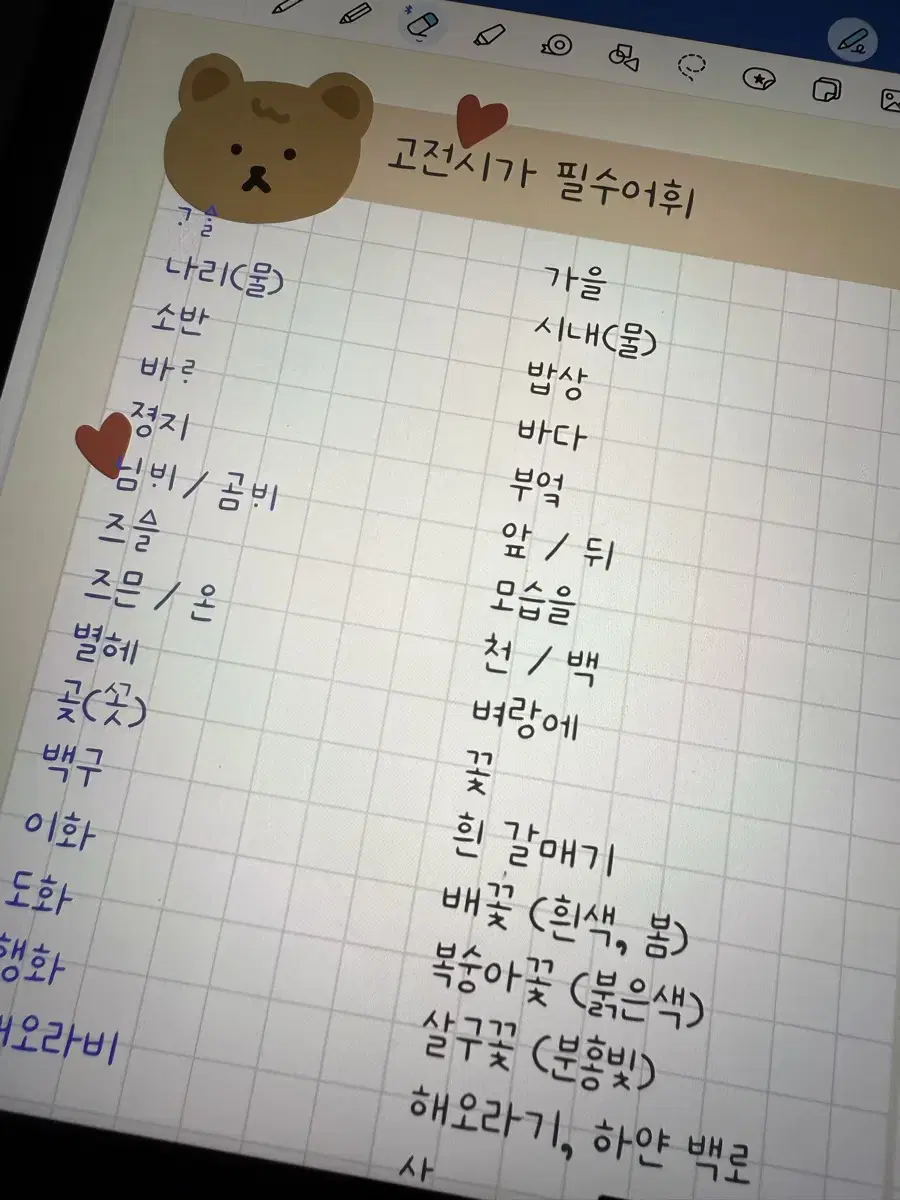 고전시가 필수어휘
ᄀᆞᅀᆞᆯ 가을
나리(물) 시내(물)
소반 밥상
바ᄅᆞ 바다
졍지 부엌
님ᄇᆡ / 곰ᄇᆡ 앞 / 뒤
즈ᅀᅳᆯ 모습을
즈문 / 온 천 / 백
별헤 벼랑에
곶(ᄭᅩᆺ) 꽃
백구 흰 갈매기
이화 배꽃 (흰색, 봄)
도화 복숭아꽃 (붉은색)
행화 살구꽃 (분홍빛)
해오라비 해오라기, 하얀 백로
사